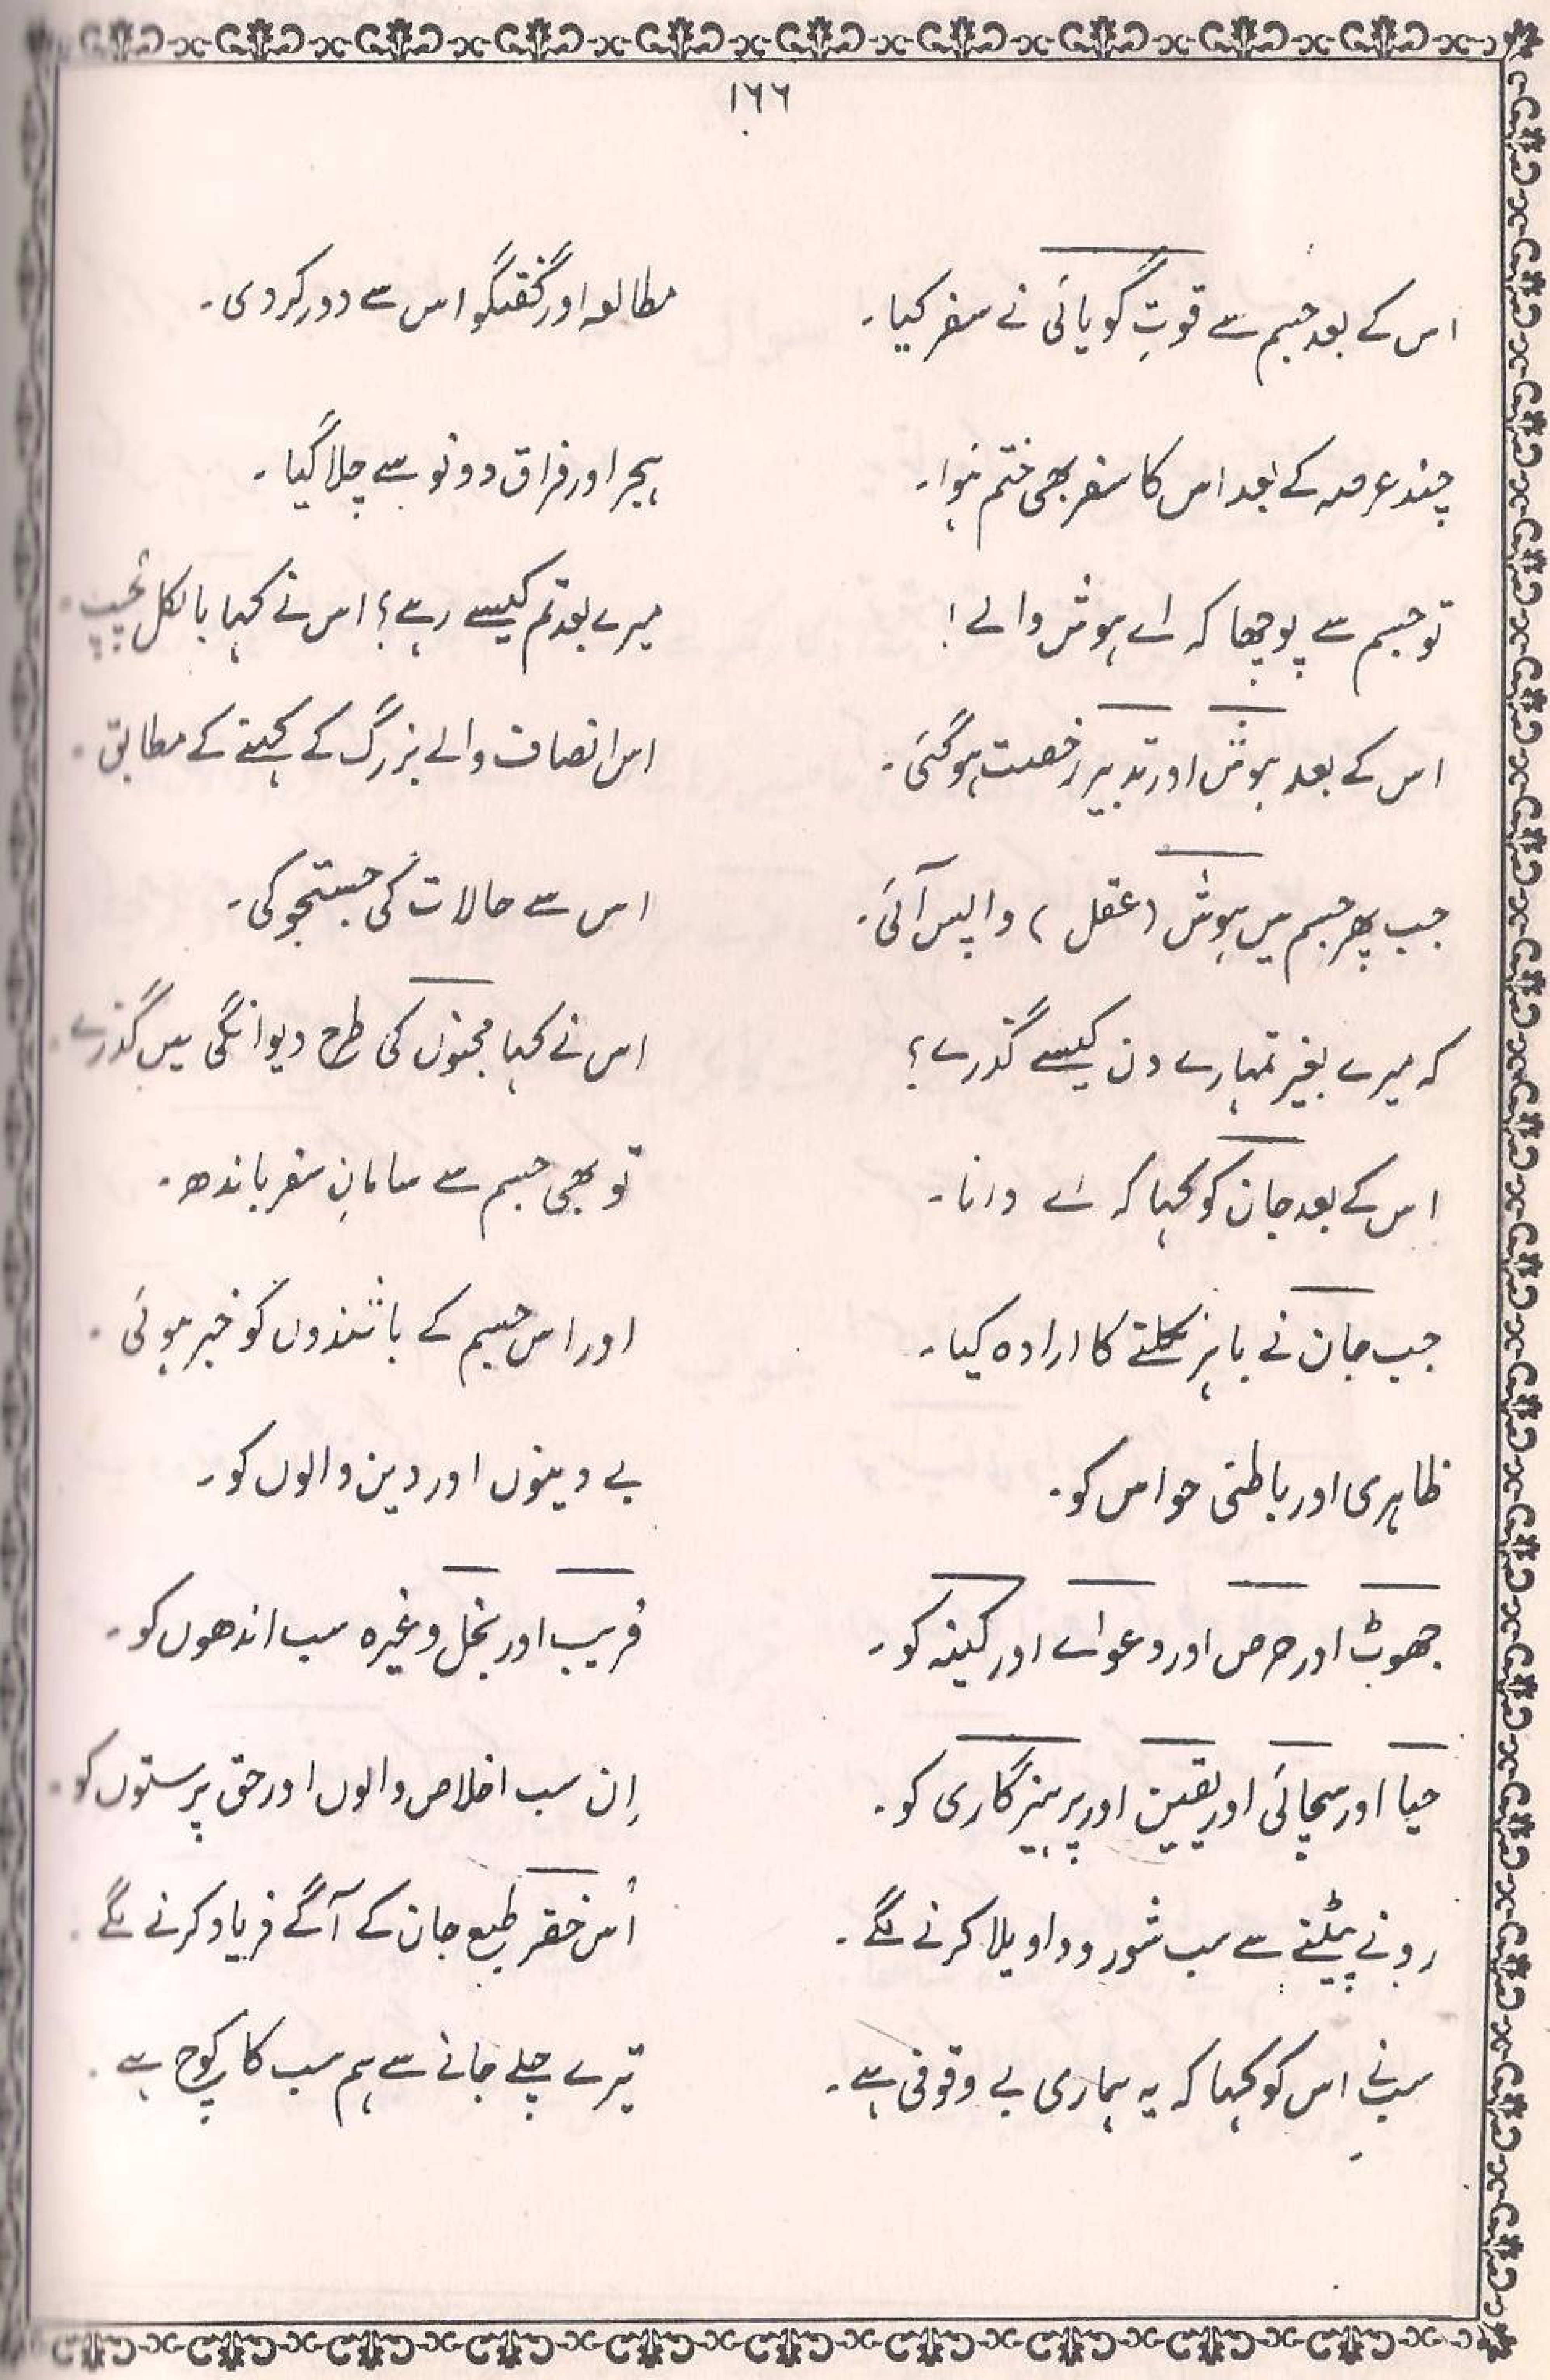 ۱۶۶
اس کے بعد جسم سے قوتِ گویائی نے سفر کیا۔ مطالعہ اور گفتگو اس سے دور کر دی۔
چند عرصہ کے بعد اس کا سفر بھی ختم ہوا۔ ہجر اور فراق دونو سے چلا گیا۔
تو جسم سے پوچھا کہ اے ہوش والے! میرے بعد تم کیسے رہے؟ اس نے کہا بالکل چُپ۔
اس کے بعد ہوش اور تدبیر رخصت ہو گئی۔ اس انصاف والے بزرگ کے کہنے کے مطابق۔
جب پھر جسم میں ہوش (عقل) واپس آئی۔ اس سے حالات کی جستجو کی۔
کہ میرے بغیر تمہارے دن کیسے گذرے؟ اس نے کہا مجنوں کی طرح دیوانگی میں گذرے۔
اس کے بعد جان کو کہا کہ اے دانا۔ تو بھی جسم سے سامانِ سفر باندھ۔
جب جان نے باہر نکلنے کا ارادہ کیا۔ اور اس جسم کے باشندوں کو خبر ہوئی۔
ظاہری اور باطنی حواس کو۔ بے دینوں اور دین والوں کو۔
جھوٹ اور حرص اور دعواے اور کینہ کو۔ فریب اور بخل وغیرہ سب اندھوں کو۔
حیا اور سچائی اور یقین اور پرہیزگاری کو۔ اِن سب اخلاص والوں اور حق پرستوں کو۔
رونے پیٹنے سے سب شور و واویلا کرنے لگے۔ اُس خضر طبع جان کے آگے فریاد کرنے لگے۔
سب نے اس کو کہا کہ یہ ہماری بے وقوفی ہے۔ تیرے چلے جانے سے ہم سب کا کوچ ہے۔